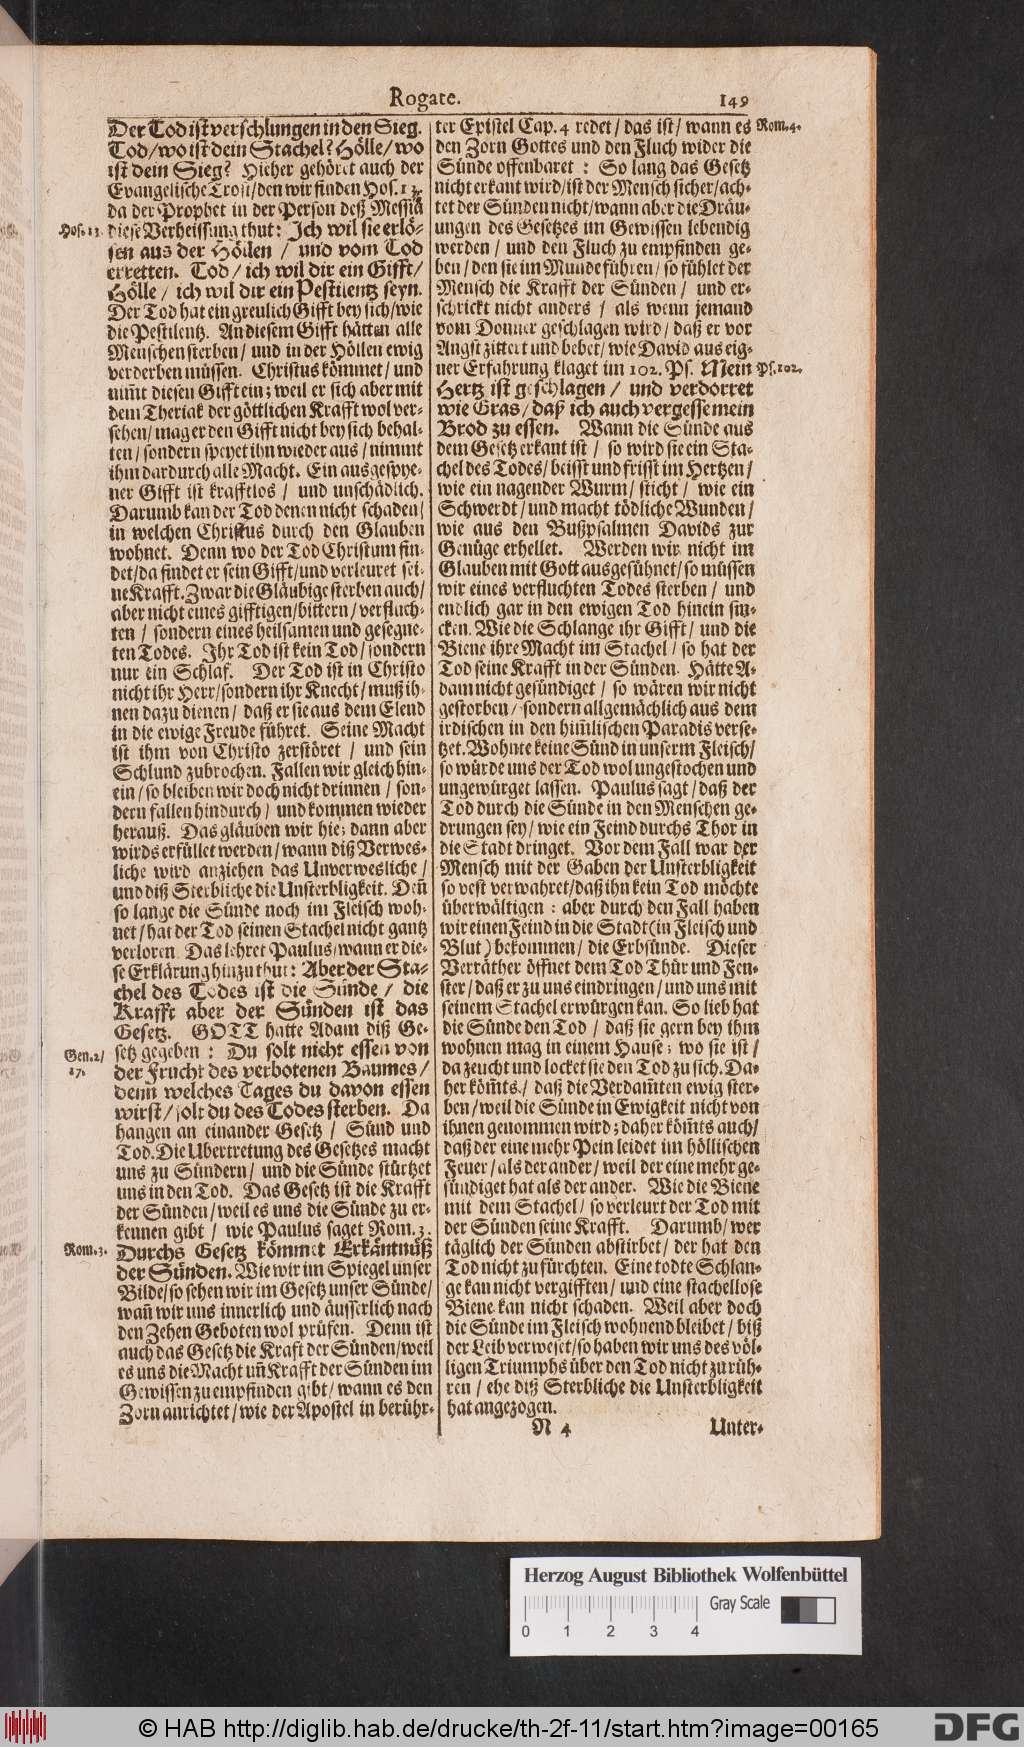 Rogate. 149
Der Tod ist verschlungen in den Sieg.
Tod/ wo ist dein Stachel? Hölle/ wo
ist dein Sieg? Hieher gehöret auch der
Evangelische Trost/ den wir finden Hos. 13.
da der Prophet in der Person deß Messiä
Hos. 13.
diese Verheissung thut: Ich wil sie erlö-
sen aus der Höllen / und vom Tod
erretten. Tod/ ich wil dir ein Gifft/
Hölle/ ich wil dir ein Pestilentz seyn.
Der Tod hat ein greulich Gifft bey sich/ wie
die Pestilentz. An diesem Gifft hätten alle
Menschen sterben/ und in der Höllen ewig
verderben müssen. Christus kömmet/ und
nim̃t diesen Gifft ein; weil er sich aber mit
dem Theriak der göttlichen Krafft wol ver-
sehen/ mag er den Gifft nicht bey sich behal-
ten/ sondern speyet ihn wieder aus/ nimmt
ihm dardurch alle Macht. Ein ausgespye-
ner Gifft ist krafftlos / und unschädlich.
Darumb kan der Tod denen nicht schaden/
in welchen Christus durch den Glauben
wohnet. Denn wo der Tod Christum fin-
det/ da findet er sein Gifft/ und verleuret sei-
ne Krafft. Zwar die Gläubige sterben auch/
aber nicht eines gifftigen/ bittern/ verfluch-
ten / sondern eines heilsamen und gesegne-
ten Todes. Ihr Tod ist kein Tod/ sondern
nur ein Schlaf. Der Tod ist in Christo
nicht ihr Herr/ sondern ihr Knecht/ muß ih-
nen dazu dienen/ daß er sie aus dem Elend
in die ewige Freude führet. Seine Macht
ist ihm von Christo zerstöret / und sein
Schlund zubrochen. Fallen wir gleich hin-
ein/ so bleiben wir doch nicht drinnen / son-
dern fallen hindurch/ und kommen wieder
herauß. Das gläuben wir hie; dann aber
wirds erfüllet werden/ wann diß Verwes-
liche wird anziehen das Unverwesliche/
und diß Sterbliche die Unsterbligkeit. Deñ
so lange die Sünde noch im Fleisch woh-
net/ hat der Tod seinen Stachel nicht gantz
verloren. Das lehret Paulus/ wann er die-
se Erklärung hinzu thut: Aber der Sta-
chel des Todes ist die Sünde/ die
Krafft aber der Sünden ist das
Gesetz. GOTT hatte Adam diß Ge-
Gen. 2/
17.
setz gegeben: Du solt nicht essen von
der Frucht des verbotenen Baumes/
denn welches Tages du davon essen
wirst/ solt du des Todes sterben. Da
hangen an einander Gesetz / Sünd und
Tod. Die Ubertretung des Gesetzes macht
uns zu Sündern/ und die Sünde stürtzet
uns in den Tod. Das Gesetz ist die Krafft
der Sünden/ weil es uns die Sünde zu er-
kennen gibt / wie Paulus saget Rom. 3.
Rom. 3.
Durchs Gesetz kömmet Erkäntnüß
der Sünden. Wie wir im Spiegel unser
Bilde/ so sehen wir im Gesetz unser Sünde/
wañ wir uns innerlich und äusserlich nach
den Zehen Geboten wol prüfen. Denn ist
auch das Gesetz die Kraft der Sünden/ weil
es uns die Macht uñ Krafft der Sünden im
Gewissen zu empfinden gibt/ wann es den
Zorn anrichtet/ wie der Apostel in berühr-
ter Epistel Cap. 4 redet/ das ist/ wann es
Rom. 4.
den Zorn Gottes und den Fluch wider die
Sünde offenbaret: So lang das Gesetz
nicht erkant wird/ ist der Mensch sicher/ ach-
tet der Sünden nicht/ wann aber die Dräu-
ungen des Gesetzes im Gewissen lebendig
werden / und den Fluch zu empfinden ge-
ben/ den sie im Munde führen/ so fühlet der
Mensch die Krafft der Sünden/ und er-
schrickt nicht anders / als wenn jemand
vom Donner geschlagen wird/ daß er vor
Angst zittert und bebet/ wie David aus eig-
ner Erfahrung klaget im 102. Ps. Mein
Ps. 102.
Hertz ist geschlagen/ und verdorret
wie Gras/ daß ich auch vergesse mein
Brod zu essen. Wann die Sünde aus
dem Gesetz erkant ist / so wird sie ein Sta-
chel des Todes/ beisst und frisst im Hertzen/
wie ein nagender Wurm/ sticht/ wie ein
Schwerdt/ und macht tödliche Wunden/
wie aus den Bußpsalmen Davids zur
Genüge erhellet. Werden wir nicht im
Glauben mit Gott ausgesühnet/ so müssen
wir eines verfluchten Todes sterben/ und
endlich gar in den ewigen Tod hinein sin-
cken. Wie die Schlange ihr Gifft/ und die
Biene ihre Macht im Stachel/ so hat der
Tod seine Krafft in der Sünden. Hätte A-
dam nicht gesündiget / so wären wir nicht
gestorben/ sondern allgemächlich aus dem
irdischen in den him̃lischen Paradis verse-
tzet. Wohnte keine Sünd in unserm Fleisch/
so würde uns der Tod wol ungestochen und
ungewürget lassen. Paulus sagt/ daß der
Tod durch die Sünde in den Menschen ge-
drungen sey/ wie ein Feind durchs Thor in
die Stadt dringet. Vor dem Fall war der
Mensch mit der Gaben der Unsterbligkeit
so vest verwahret/ daß ihn kein Tod möchte
überwältigen: aber durch den Fall haben
wir einen Feind in die Stadt (in Fleisch und
Blut) bekommen/ die Erbsünde. Dieser
Verräther öffnet dem Tod Thür und Fen-
ster/ daß er zu uns eindringen/ und uns mit
seinem Stachel erwürgen kan. So lieb hat
die Sünde den Tod / daß sie gern bey ihm
wohnen mag in einem Hause; wo sie ist/
da zeucht und locket sie den Tod zu sich. Da-
her köm̃ts/ daß die Verdam̃ten ewig ster-
ben/ weil die Sünde in Ewigkeit nicht von
ihnen genommen wird; daher köm̃ts auch/
daß der eine mehr Pein leidet im höllischen
Feuer/ als der ander/ weil der eine mehr ge-
sündiget hat als der ander. Wie die Biene
mit dem Stachel/ so verleurt der Tod mit
der Sünden seine Krafft. Darumb/ wer
täglich der Sünden abstirbet/ der hat den
Tod nicht zu fürchten. Eine todte Schlan-
ge kan nicht vergifften/ und eine stachellose
Biene kan nicht schaden. Weil aber doch
die Sünde im Fleisch wohnend bleibet/ biß
der Leib verweset/ so haben wir uns des völ-
ligen Triumphs über den Tod nicht zu rüh-
ren / ehe diß Sterbliche die Unsterbligkeit
hat angezogen.
N 4 Unter-
Herzog August Bibliothek Wolfenbüttel
Gray Scale
0 1 2 3 4
© HAB http://diglib.hab.de/drucke/th-2f-11/start.htm?image=00165
DFG